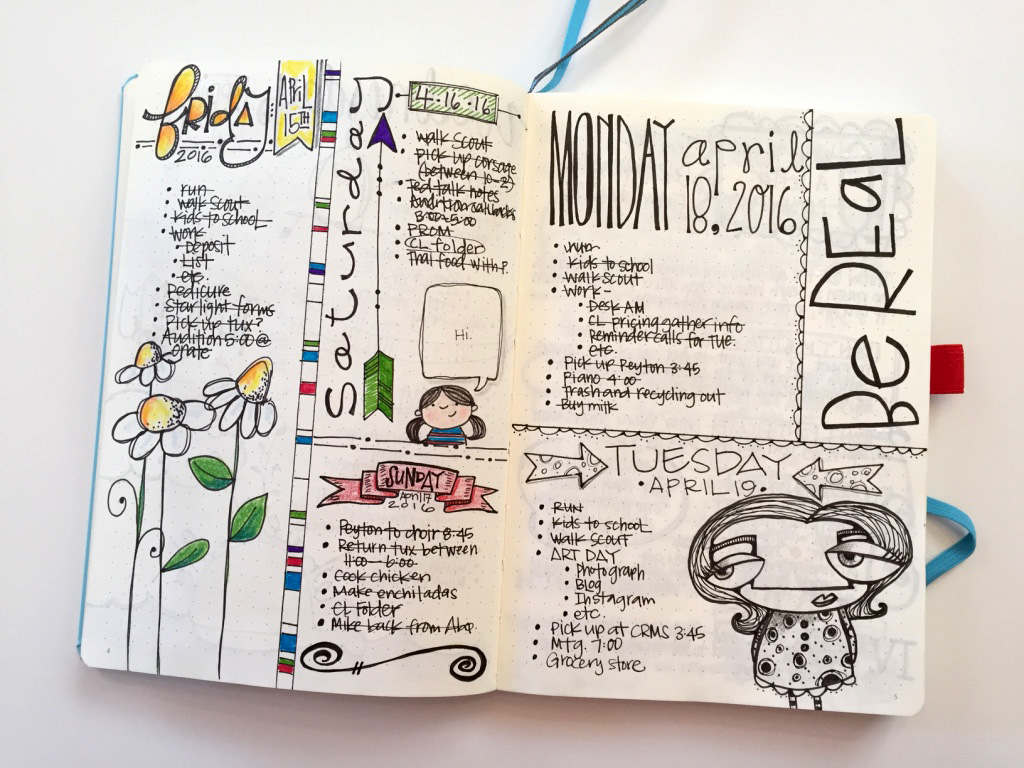 friday
April
15TH
2016
• run
• walk Scout
• kids to school
• work
• Deposit
• List
• etc.
• Pedicure
• Starlight forms
• Pick up tux?
• Audition 5:00 @
Onate
Saturday
4•16•16
• walk Scout
• pick up corsage
(between 10-2)
• Ted talk notes
• Audition callbacks
3:00-5:00
• PROM
• CL folder
• Thai food with P.
Hi.
SUNDAY
April 17
2016
• Peyton to choir 8:45
• Return tux between
11:00 - 6:00
• Cook chicken
• Make enchiladas
• CL Folder
• Mike back from Abq.
MONDAY april
18, 2016
• run
• kids to school
• walk Scout
• work -
• Desk AM
• CL pricing gather info
• Reminder calls for Tue.
• etc.
• Pick up Peyton 3:45
• Piano 4:00
• Trash and recycling out
• Buy milk
Be REaL
TUESDAY
• APRIL 19 •
• RUN
• Kids to school
• Walk Scout
• ART DAY
• Photograph
• Blog
• Instagram
• etc.
• Pick up at CRMS 3:45
• Mtg. 7:00
• Grocery store
4
5